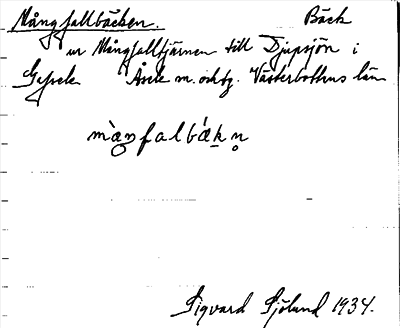 Mångfallbäcken. Bäck
ur Mångfalltjärnen till Djupsjön i
Åsele m. o. skg. Västerbottens län
màŋfalbǽkn̥
Sigvard Sjölund 1934.